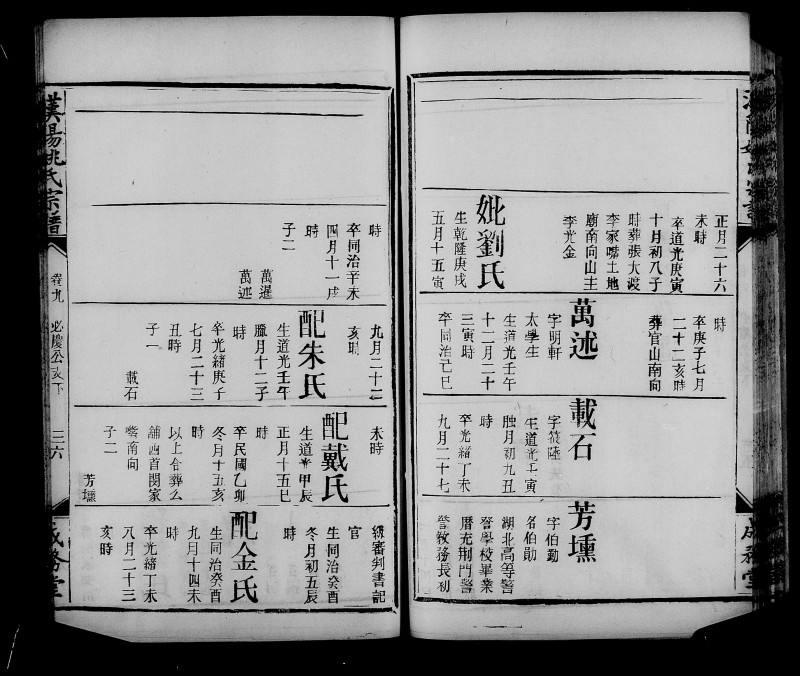 正月二十六
未時
卒道光庚寅
十月初八子
時葬張大渡
李家嘴土地
廟南向山主
李光金
妣劉氏
生乾隆庚戌
五月十五寅
時
卒庚子七月
二十二亥時
葬官山南向
萬述
字明軒
太學生
生道光壬午
十二月二十
三寅時
卒同治己巳
載石
字筱隆
生道光壬寅
臘月初九丑
時
卒光緒丁未
九月二十七
芳壎
字伯勤
名伯勛
湖北高等警
警學校畢業
曆充荆門警
警教務長初
成務堂
漢陽姚氏宗譜
卷九
必慶公支下
三六
成務堂
時
卒同治辛未
四月十一戌
時
子二
萬暹
萬述
九月二十二
亥時
配朱氏
生道光壬午
臘月十二子
時
卒光緒庚子
七月二十三
丑時
子一
載石
未時
配戴氏
生道光甲辰
正月十五巳
時
卒民國乙卯
冬月十五亥
時
以上合葬么
舖西首閔家
嘴南向
子二
芳壎
級審判書記
官
生同治癸酉
冬月初五辰
時
配金氏
生同治癸酉
九月十四未
時
卒光緒丁未
八月二十三
亥時